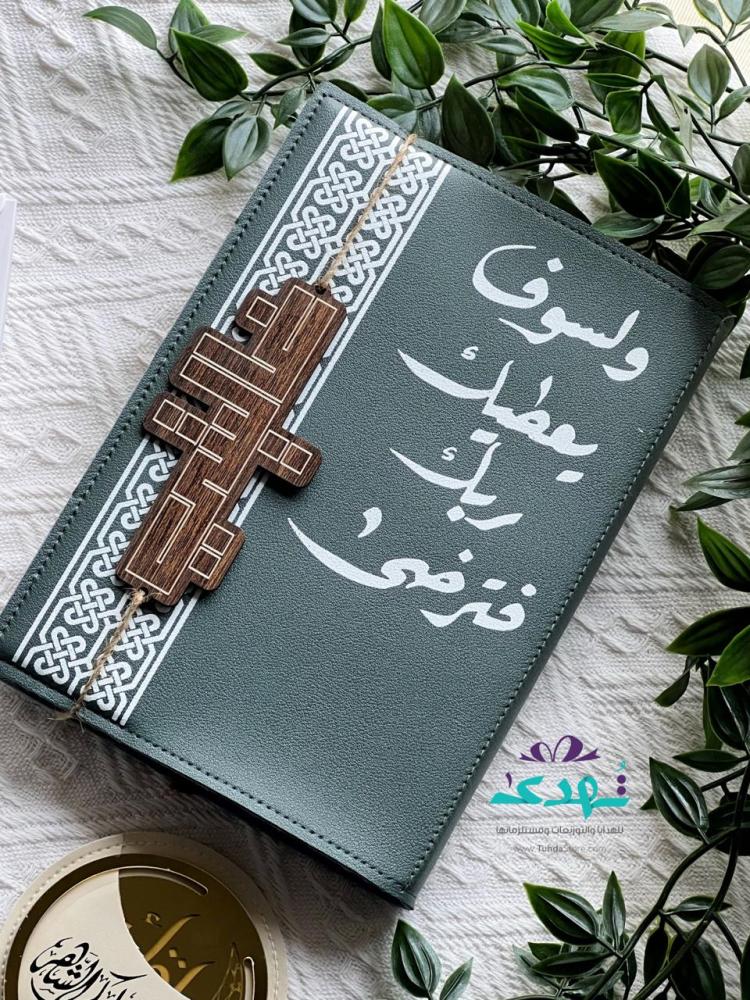 ولسوف
يعطيك
ربك
فترضى
تهدى
للهدايا والتوزيعات ومستلزماتها
www.TuhdaStore.com